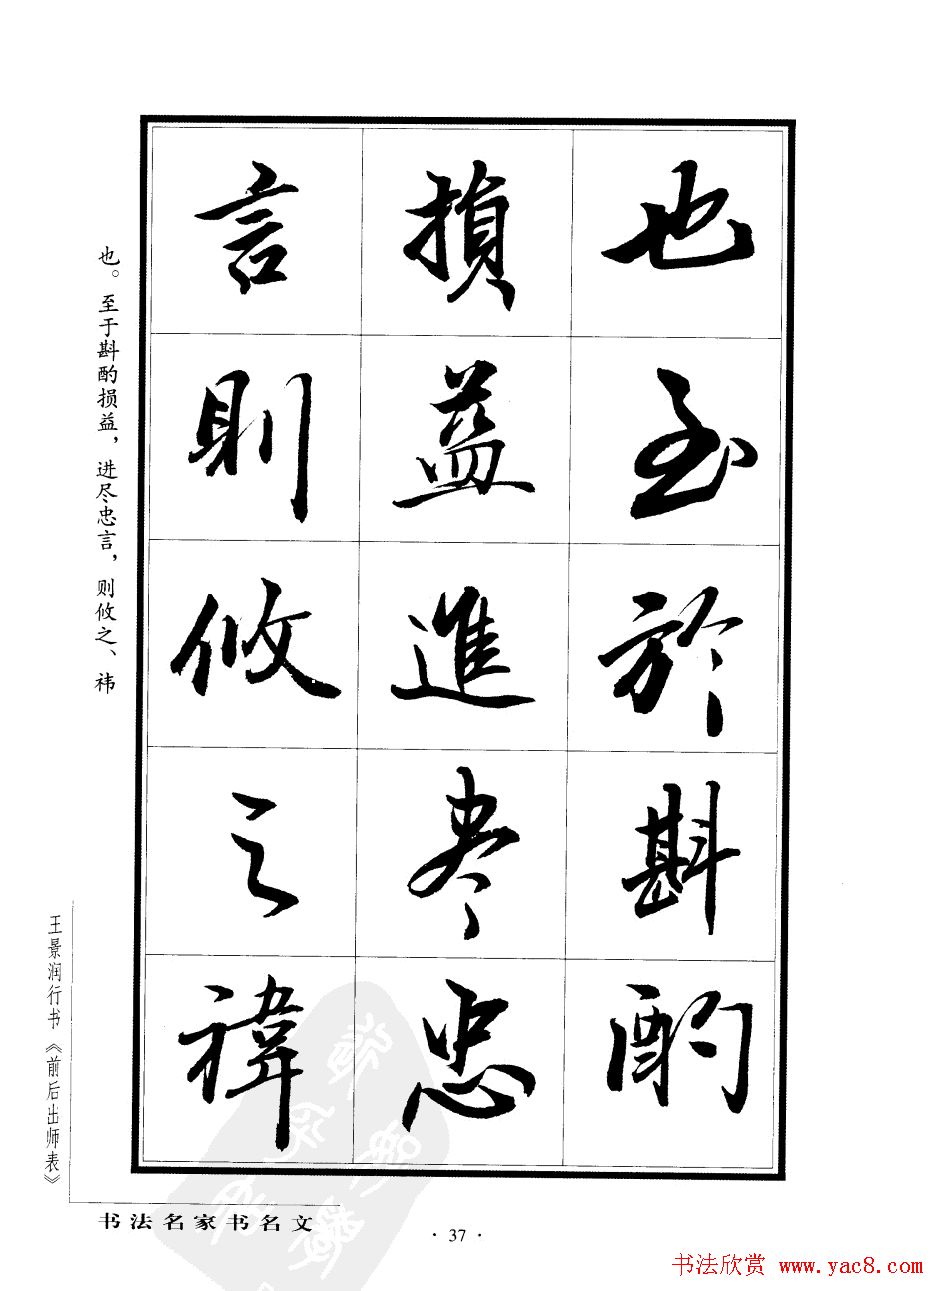 也至於斟酌
損益進尽忠
言則攸之禕
也。至于斟酌损益，进尽忠言，则攸之、祎
王景润行书《前后出师表》
书法名家书名文
·37·
书法欣赏 www.yac8.com